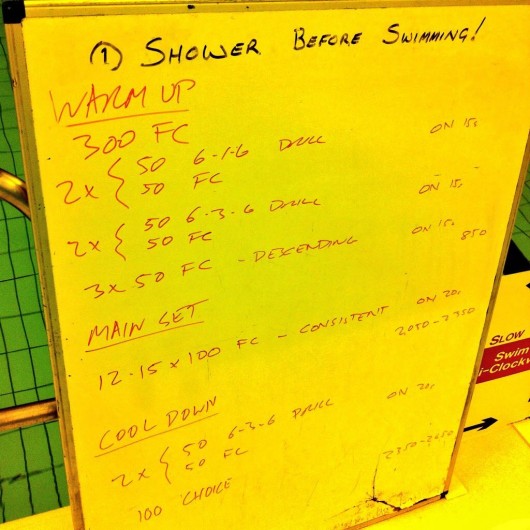 ① SHOWER BEFORE SWIMMING!
WARM UP
300 FC
2x { 50 6-1-6 DRILL ON 15s
50 FC
2x { 50 6-3-6 DRILL ON 15s
50 FC
3x 50 FC - DESCENDING ON 15s
850
MAIN SET
12-15 x 100 FC - CONSISTENT ON 20s
2050-2350
COOL DOWN
2x { 50 6-3-6 DRILL ON 20s
50 FC
100 CHOICE 2350-2650
SLOW
Swim
i-Clockw